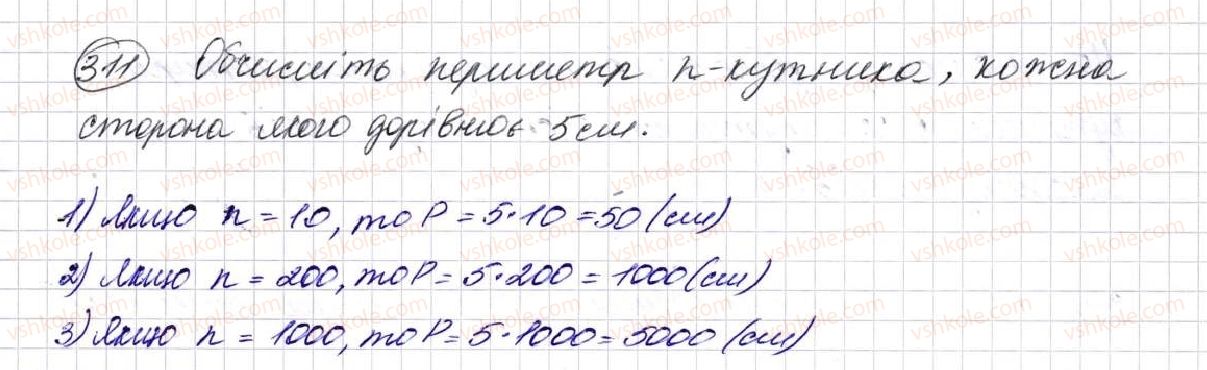 311 Обчисліть периметр n-кутника, кожна
сторона якого дорівнює 5см.
1) Якщо n = 10, то P = 5·10 = 50 (см)
2) Якщо n = 200, то P = 5·200 = 1000 (см)
3) Якщо n = 1000, то P = 5·1000 = 5000 (см)